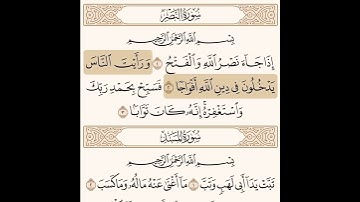 سُورَةُ النَّصْرِ
بِسْمِ اللَّهِ الرَّحْمَٰنِ الرَّحِيمِ
إِذَا جَاءَ نَصْرُ اللَّهِ وَالْفَتْحُ ١ وَرَأَيْتَ النَّاسَ
يَدْخُلُونَ فِي دِينِ اللَّهِ أَفْوَاجًا ٢ فَسَبِّحْ بِحَمْدِ رَبِّكَ
وَاسْتَغْفِرْهُ إِنَّهُ كَانَ تَوَّابًا ٣
سُورَةُ الْمَسَدِ
بِسْمِ اللَّهِ الرَّحْمَٰنِ الرَّحِيمِ
تَبَّتْ يَدَا أَبِي لَهَبٍ وَتَبَّ ١ مَا أَغْنَىٰ عَنْهُ مَالُهُ وَمَا كَسَبَ ٢